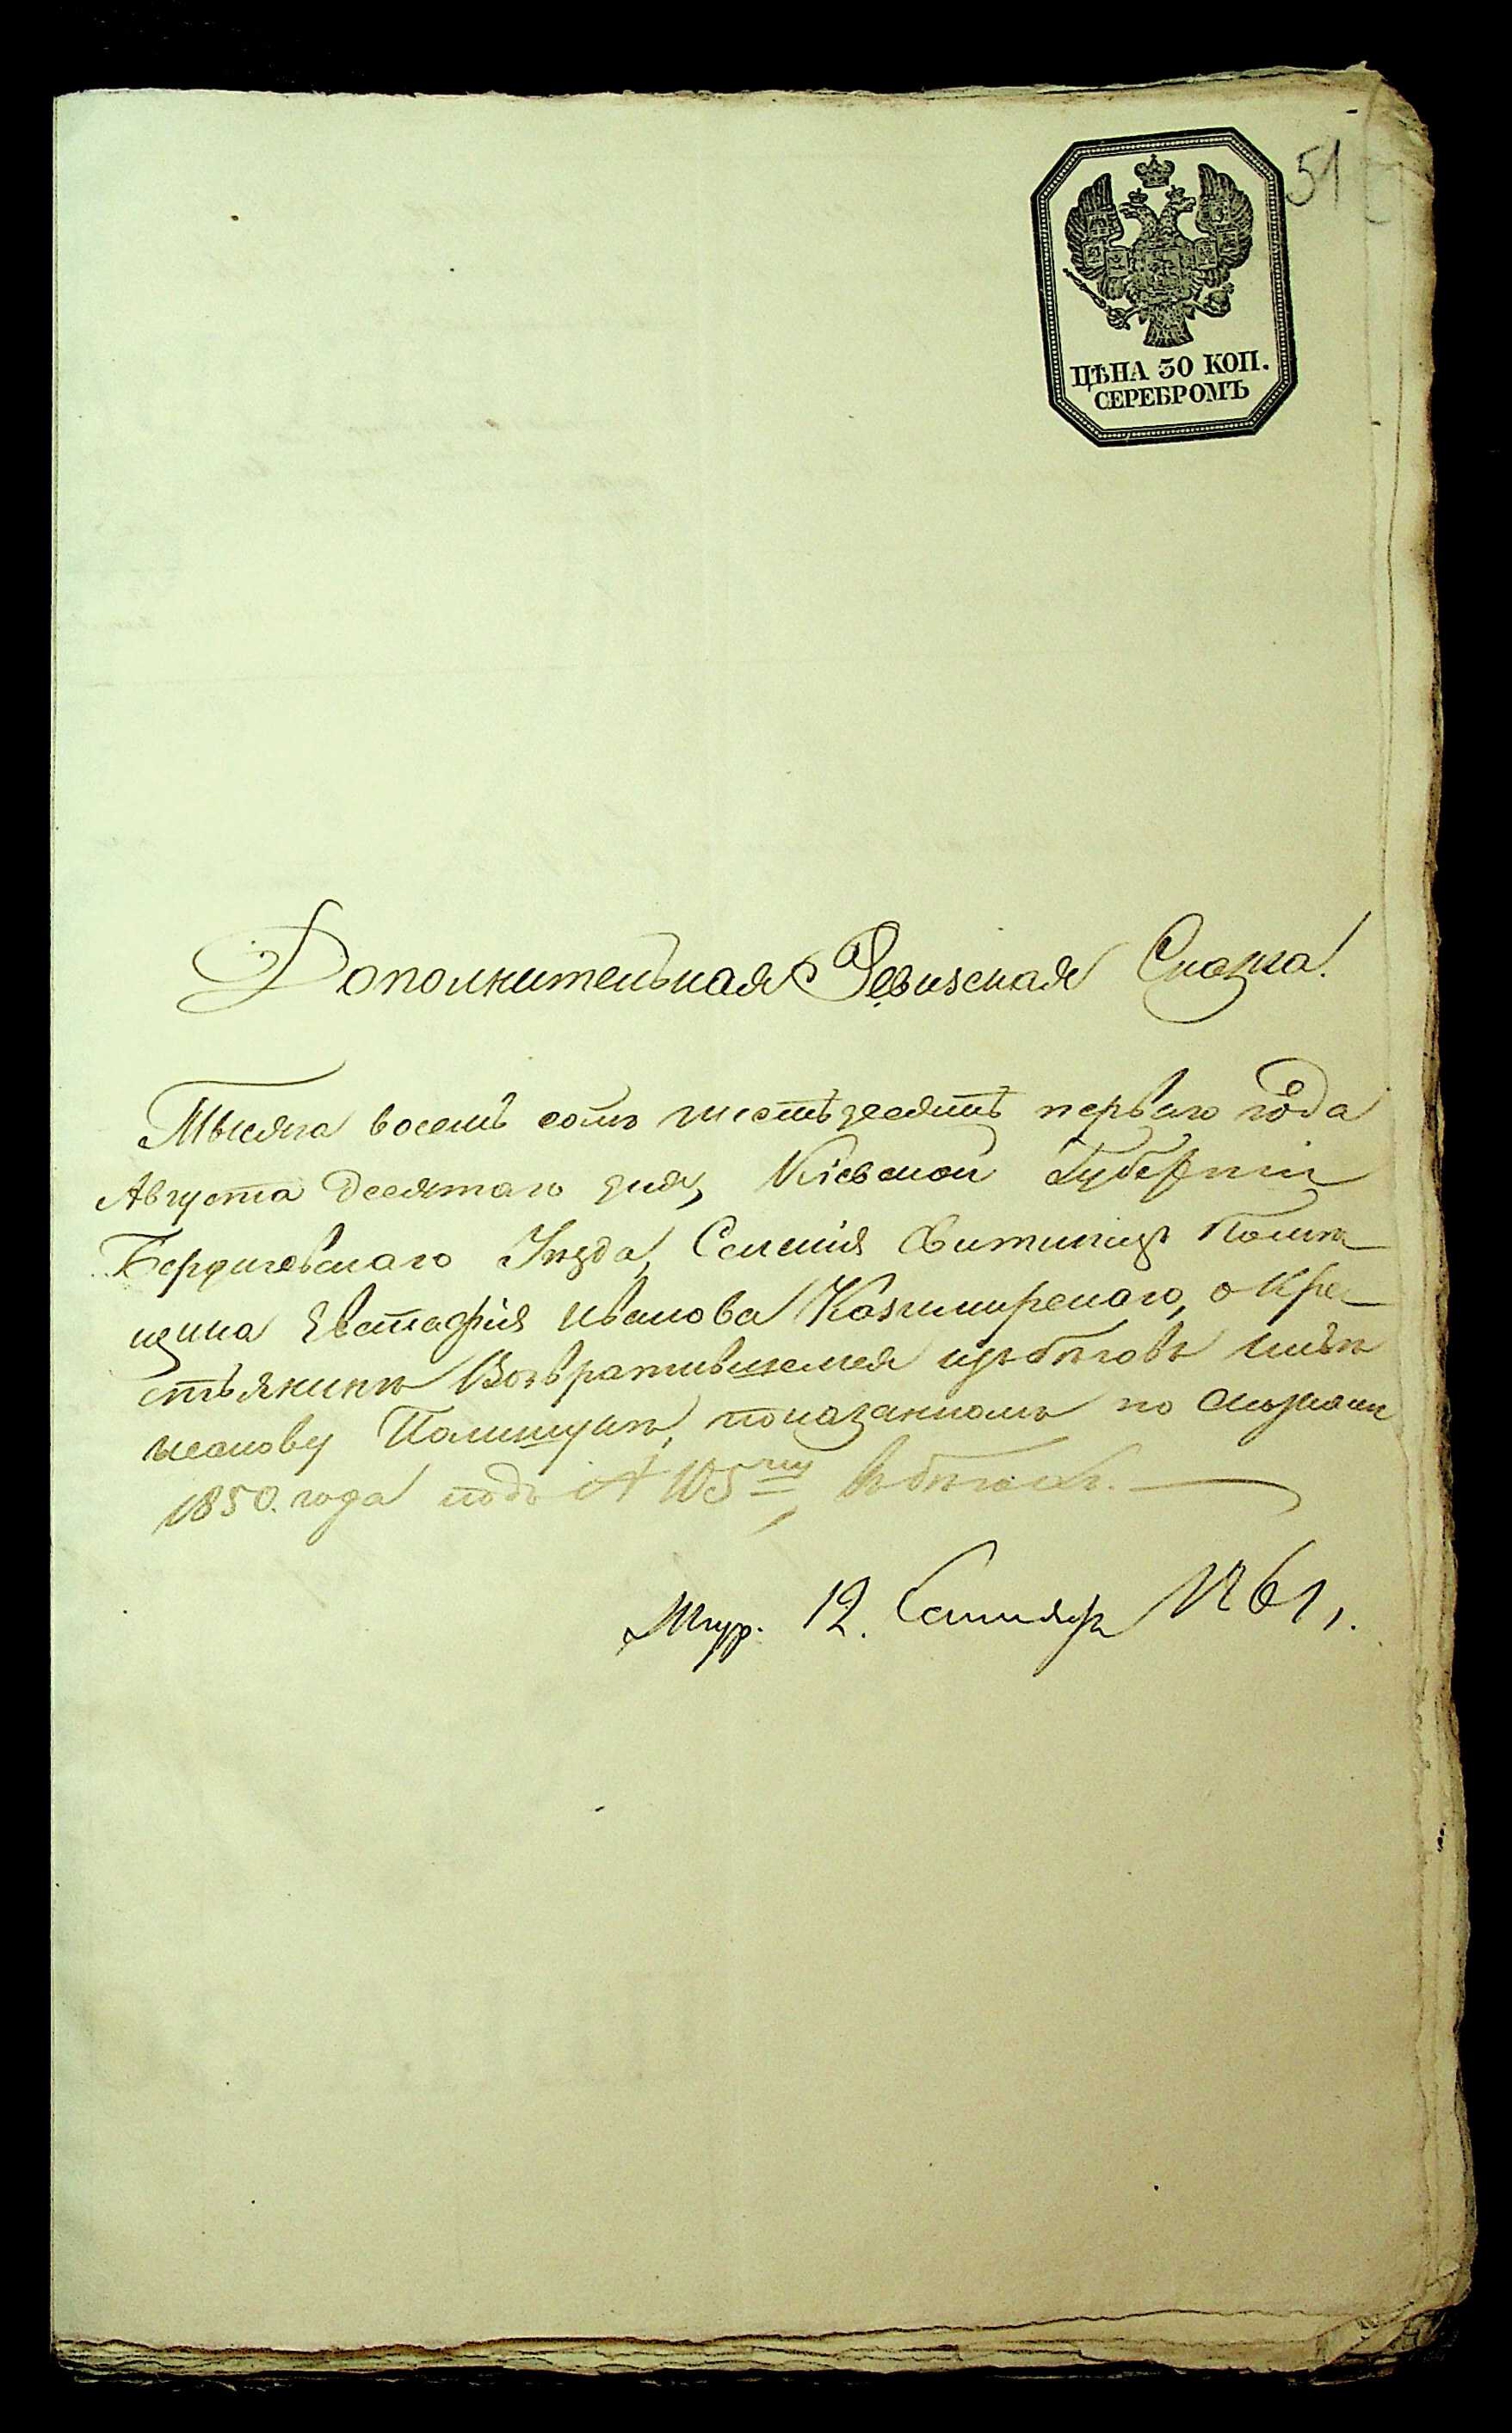 51
ЦѢНА 30 КОП.
СЕРЕБРОМЪ
Дополнительная Ревизская Сказка!
Тысяча восемь сотъ шестьдесятъ перваго года
Августа десятаго дня, Кіевской Губерніи
Бердичевскаго Уѣзда, Селенія Помѣ
щика Евстафія Иванова Казимирскаго, о Кре
стьянинѣ Возвратившемся изъ бѣговъ
Полищукѣ, показанномъ по
1850. года подъ № 105мъ въ бѣгахъ.
12. Сентября 1861,.